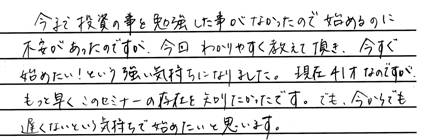 今まで投資の事を勉強した事がなかったので始めるのに
不安があったのですが、今回わかりやすく教えて頂き、今すぐ
始めたい！という強い気持ちになりました。現在41才なのですが、
もっと早くこのセミナーの存在を知りたかったです。でも、今からでも
遅くないという気持ちで始めたいと思います。